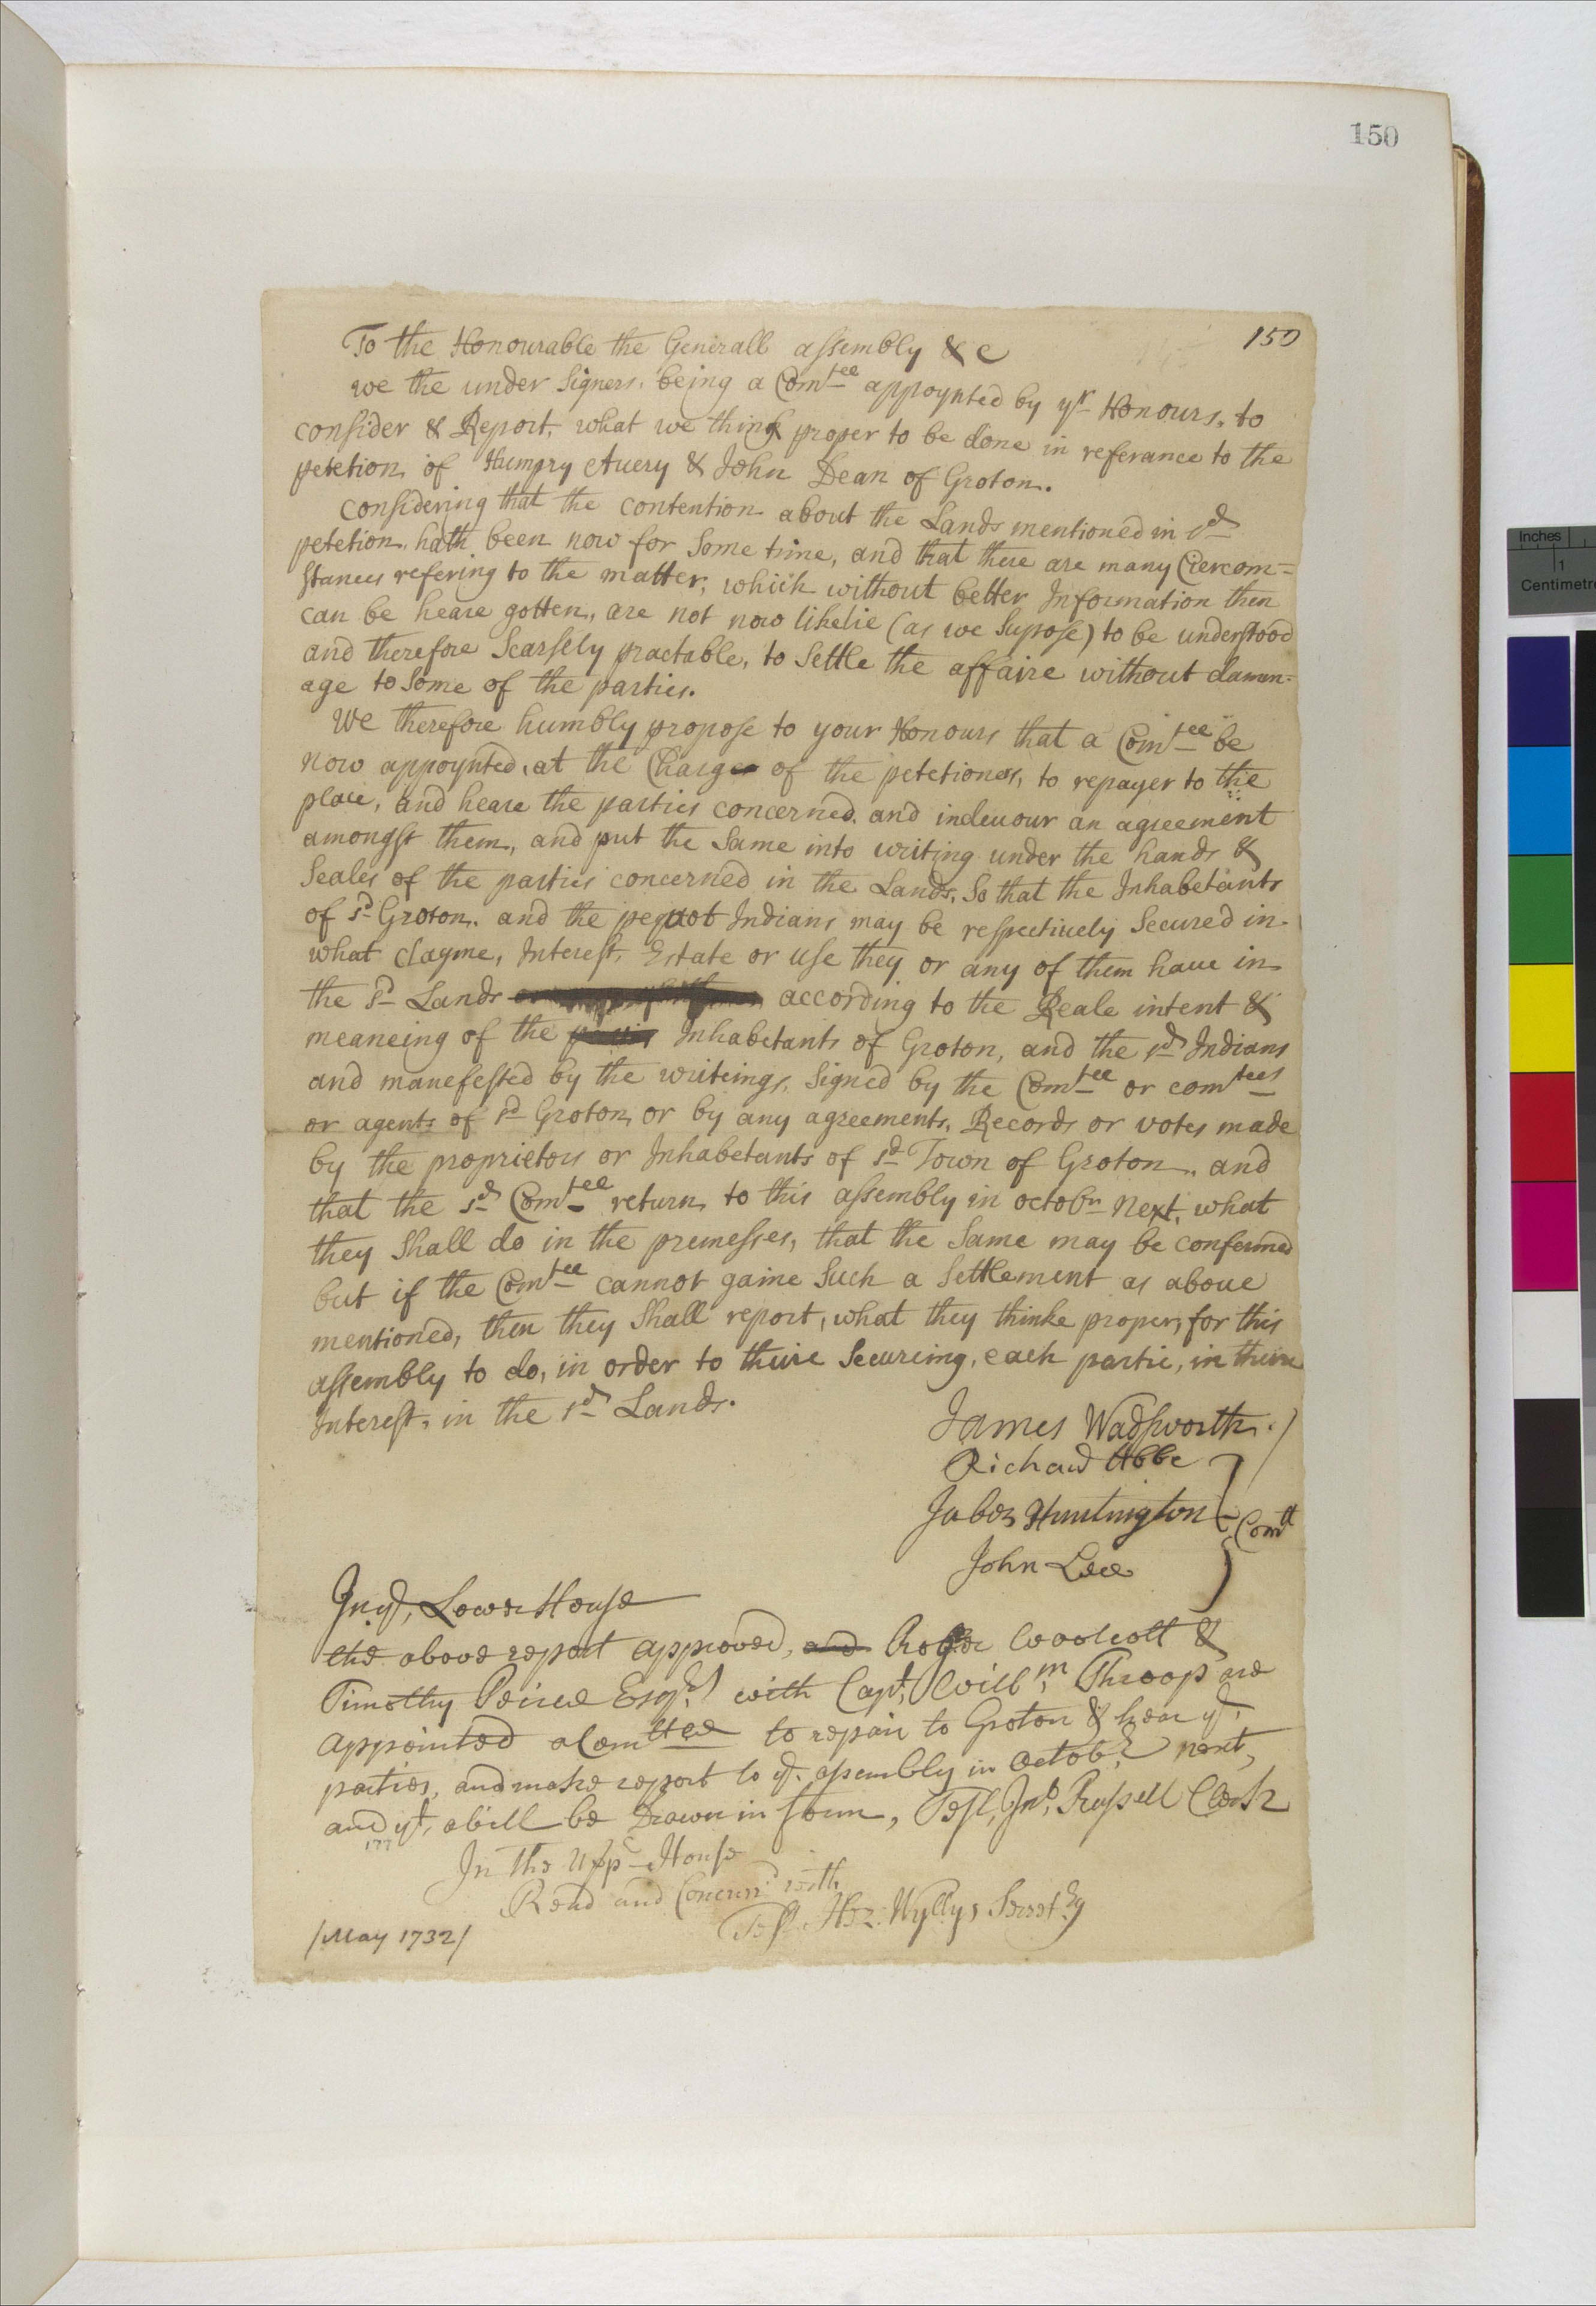 150
150
To the Honourable the Generall assembly & c
we the under Signers, being a Com^tee appoynted by y^r Honours, to
consider & Report, what we think proper to be done in referance to the
petetion of Humpry Auery & John Dean of Groton.
Considering that the contention about the Lands mentioned in s^d
petetion hath been now for Some time, and that there are many Ciercom=
stances refering to the matter, which without better Information then
can be heare gotten, are not now likelie (as we Supose) to be understood
and therefore Scarsely practable, to Settle the affaire without damm-
age to Some of the parties.
We therefore humbly propose to your Honours that a Com^tee be
now appoynted, at the Charge of the petetioners, to repayer to the
place, and heare the parties concerned. and indeuour an agreement
amongst them, and put the Same into writing under the hands &
Seales of the parties concerned in the Lands, So that the Inhabetants
of s^d Groton. and the pequot Indians may be respectiuely Secured in
what clayme, Interest, Estate or use they or any of them haue in
the s^d Lands according to the Reale intent &
meaneing of the Inhabetants of Groton, and the s^d Indians
and manefested by the writeings, Signed by the Com^tee or com^tees
or agents of s^d Groton or by any agreements, Records or votes made
by the proprietors or Inhabetants of s^d Town of Groton. and
that the s^d Com^tee return to this assembly in octob^r Next, what
they Shall do in the premesses, that the Same may be confermed
but if the Com^tee cannot gaine Such a Settlement as aboue
mentioned, then they Shall report, what they thinke proper, for this
assembly to do, in order to theire Secureing, each partie, in theire
Interest, in the s^d Lands.
James Wadsworth
Richard Abbe
Jabez Huntington Com^tt
John Lee
In y^e, Lower House
the above report approved, and Roger Woolcott &
Timothy Peirce Esq^rs with Cap^t, Will^m Throop are
appointed a Com^ttee to repair to Groton & hear y^e
parties, and make report to y^e assembly in Octob^r next,
and y^t, a bill be Drawn in form, Test, Jn^o, Russell Clerk
177
In the Upp^r House
Read and Concurr^d with
Test. Hez: Wyllys Secret^ry
/May 1732/
Inches
1
Centimetre